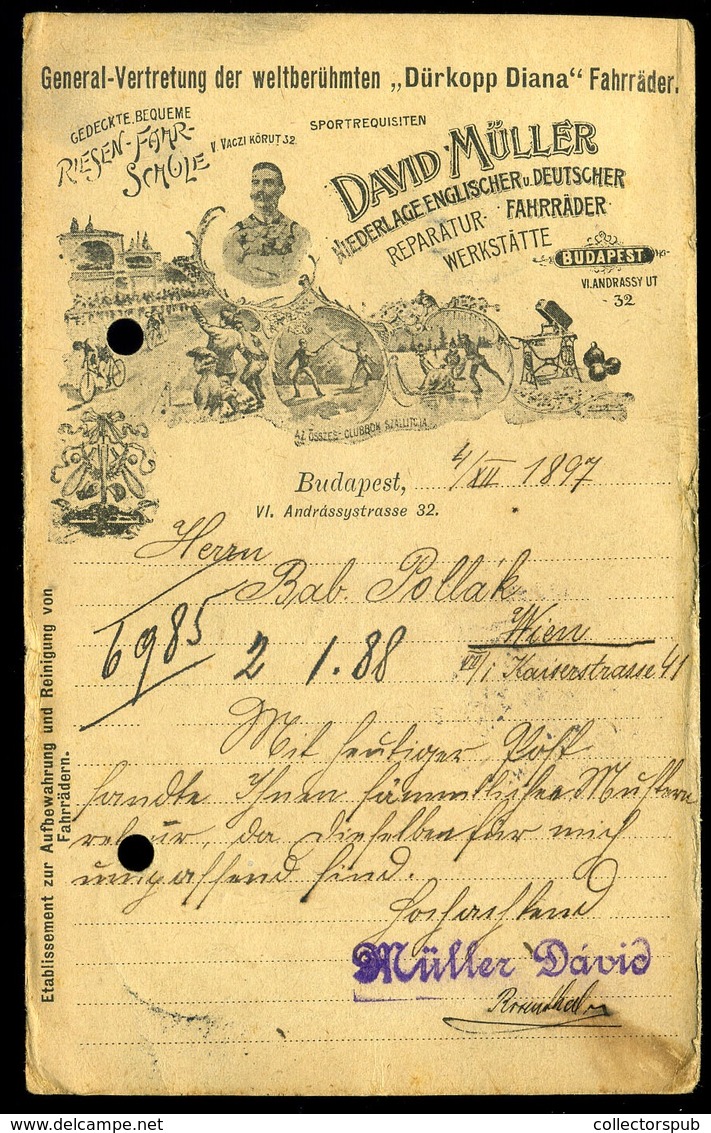 General-Vertretung der weltberühmten „Dürkopp Diana“ Fahrräder.
GEDECKTE, BEQUEME
RIESEN-FAHR-
SCHULE
V VACZI KÖRUT 32
SPORTREQUISITEN
DAVID MÜLLER
NIEDERLAGE ENGLISCHER U. DEUTSCHER
FAHRRÄDER
REPARATUR-
WERKSTÄTTE
BUDAPEST
VI. ANDRASSY UT
32
AZ ÖSSZES CLUBBOK SZALLITOJA
Budapest, 4/XII 1897
VI. Andrássystrasse 32.
Herrn
Rab. Pollák
Wien
VII/1 Kaiserstrasse 41
6985 2 1. 88
Mit heutiger Post
sandte Ihnen sämmtliche Mustern
retour, da dieselben für mich
unpassend sind.
Hochachtend
Müller Dávid
Rosenthal
Etablissement zur Aufbewahrung und Reinigung von
Fahrrädern.
delcampe.net
collectorspub